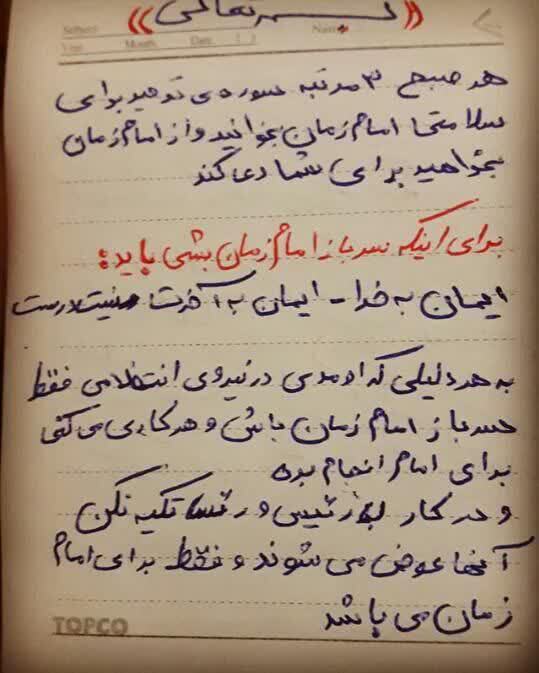 «بسمه تعالی»
Subject:
Year. Month. Date. ( )
هر صبح ۳ مرتبه سوره ی توحید برای
سلامتی امام زمان بخوانید و از امام زمان
بخواهید برای شما دعا کند
برای اینکه سرباز امام زمان بشی باید:
ایمان به خدا - ایمان به آخرت نیت درست
به هر دلیلی که اومدی در نیروی انتظامی فقط
سرباز امام زمان باش و هر کاری می کنی
برای امام انجام بده
و در کار به رئیس و رئسا تکیه نکن
آنها عوض می شوند و فقط برای امام
زمان می باشد
TOPCO